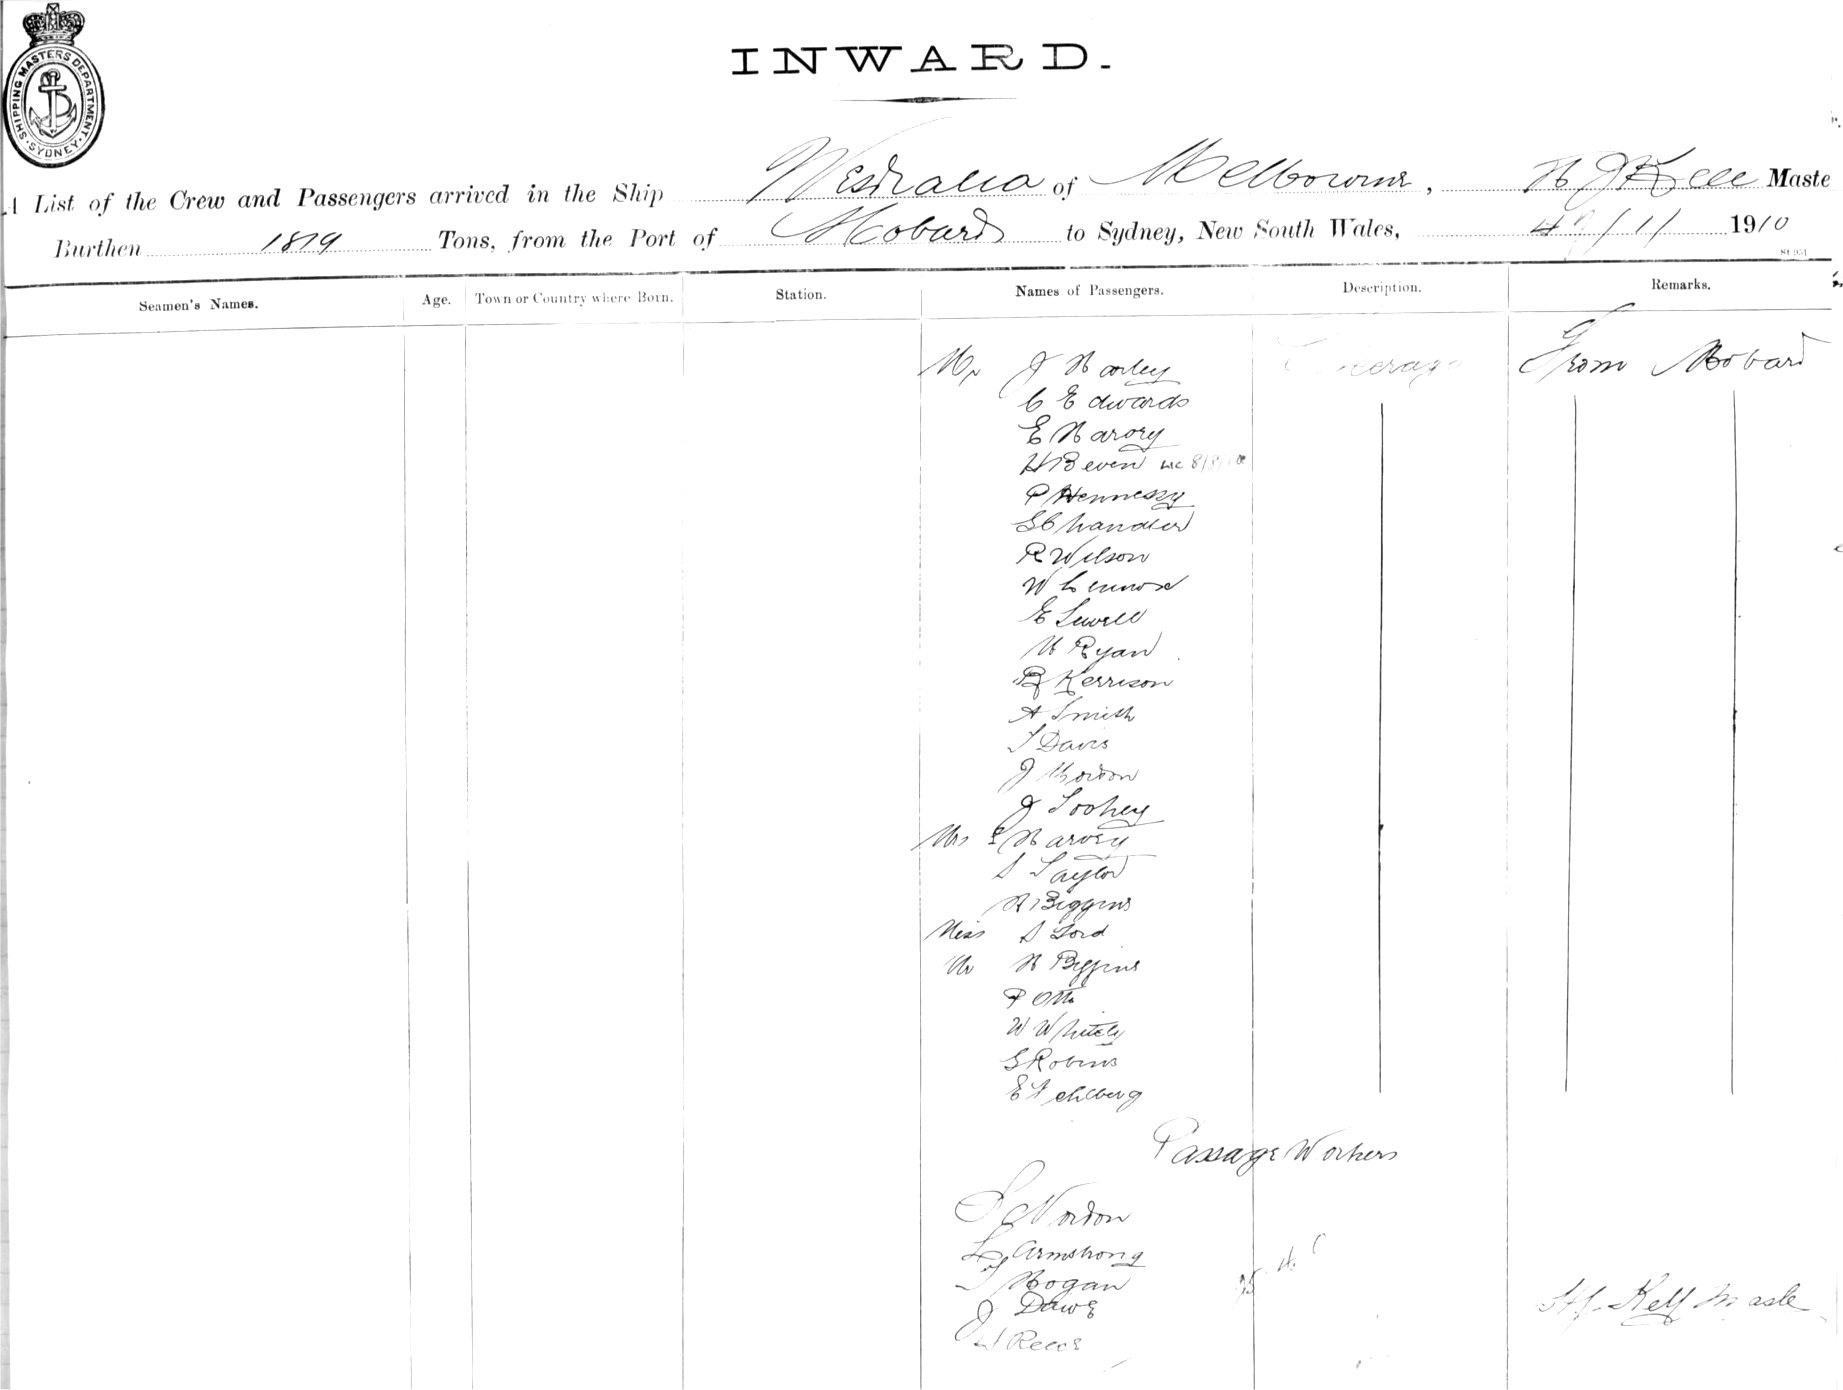 SHIPPING MASTERS DEPARTMENT
SYDNEY
INWARD.
A List of the Crew and Passengers arrived in the Ship Westralia of Melbourne, H J Kell Maste
Burthen 1819 Tons, from the Port of Hobart to Sydney, New South Wales, 4th/11/ 1910
Seamen's Names. Age. Town or Country where Born. Station. Names of Passengers. Description. Remarks.
Mr J Harley Steerage From Hobart
C Edwards
E Harvey
H Beven
P Hennessy
G Chandler
R Wilson
W Lennox
E Sewell
H Ryan
Kerrison
A Smith
T Davis
J Morton
J Toohey
Mrs E Harvey
S Taylor
H Biggins
Miss S Lord
Mr H Biggins
P Otto
W Whitely
G Robins
E Fehlberg
Passage Workers
Norton
L Armstrong
T Hogan
J Dawe
Reece
H J Kell Maste